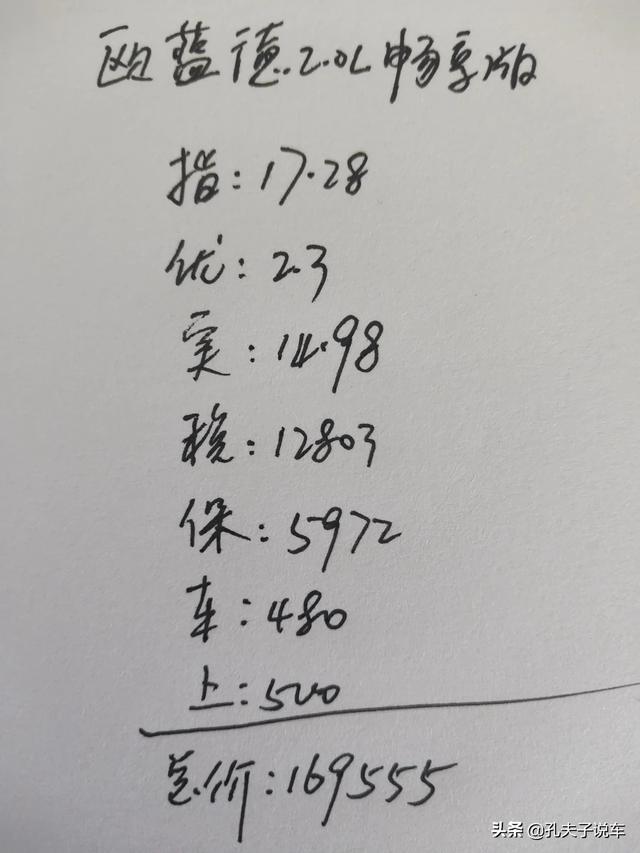 欧蓝德.2.0L畅享版
指:17.28
优:2.3
实:14.98
税:12803
保:5972
车:480
上:500
总价:169555
头条 @孔夫子说车